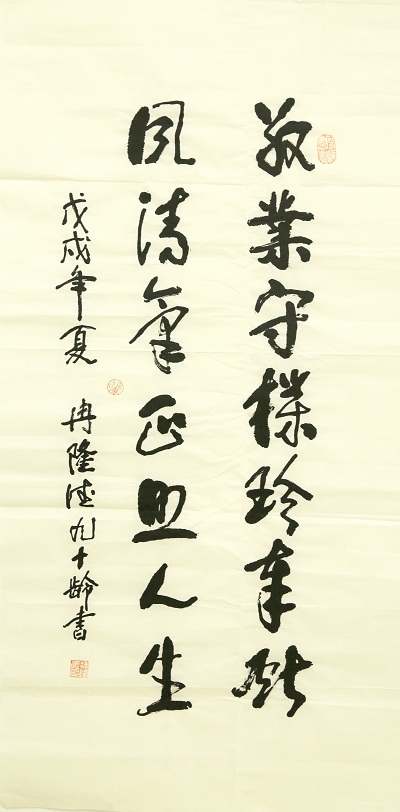 敬業守樸珍奉献
風清氣正人生
戊戌年夏 冉隆德九十齡書